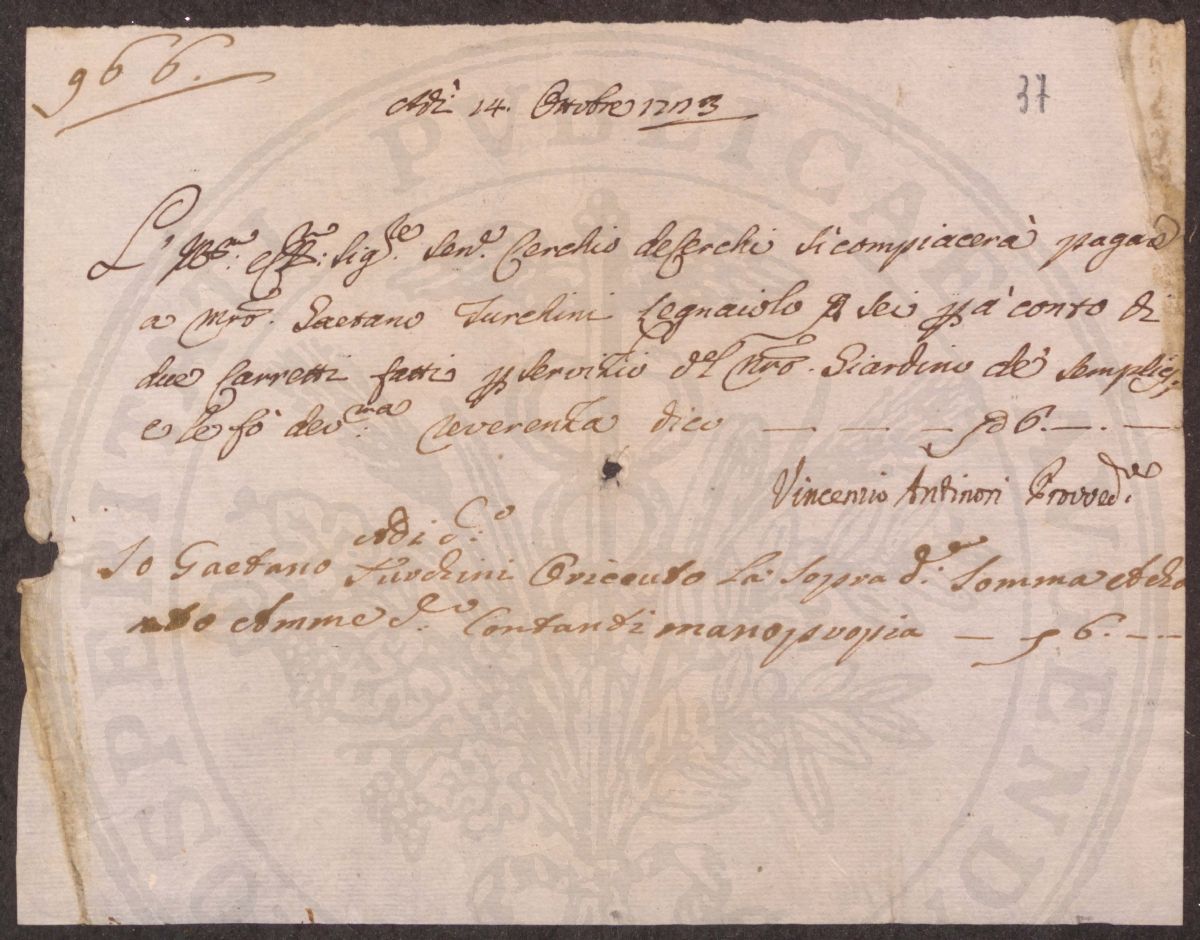 966.
37
Adì 14. Ottobre 1773
L'Ill.mo Sig.re Sen.e Cerchio de Cerchi si compiacerà pagare
a Mrō. Gaetano Turchini Legnaiolo sei p a conto di
due Carretti fatti p servizio del Nrō. Giardino de Semplici,
e le fò dev.ma reverenza dico — — — 6. — . —
Vincenzio Antinori Provved.re
Adi d.o
Io Gaetano Turchini O riceuto La sopra d.a Somma
Amme d.o Contanti mano propia — — 6. — —
PVBLICAE